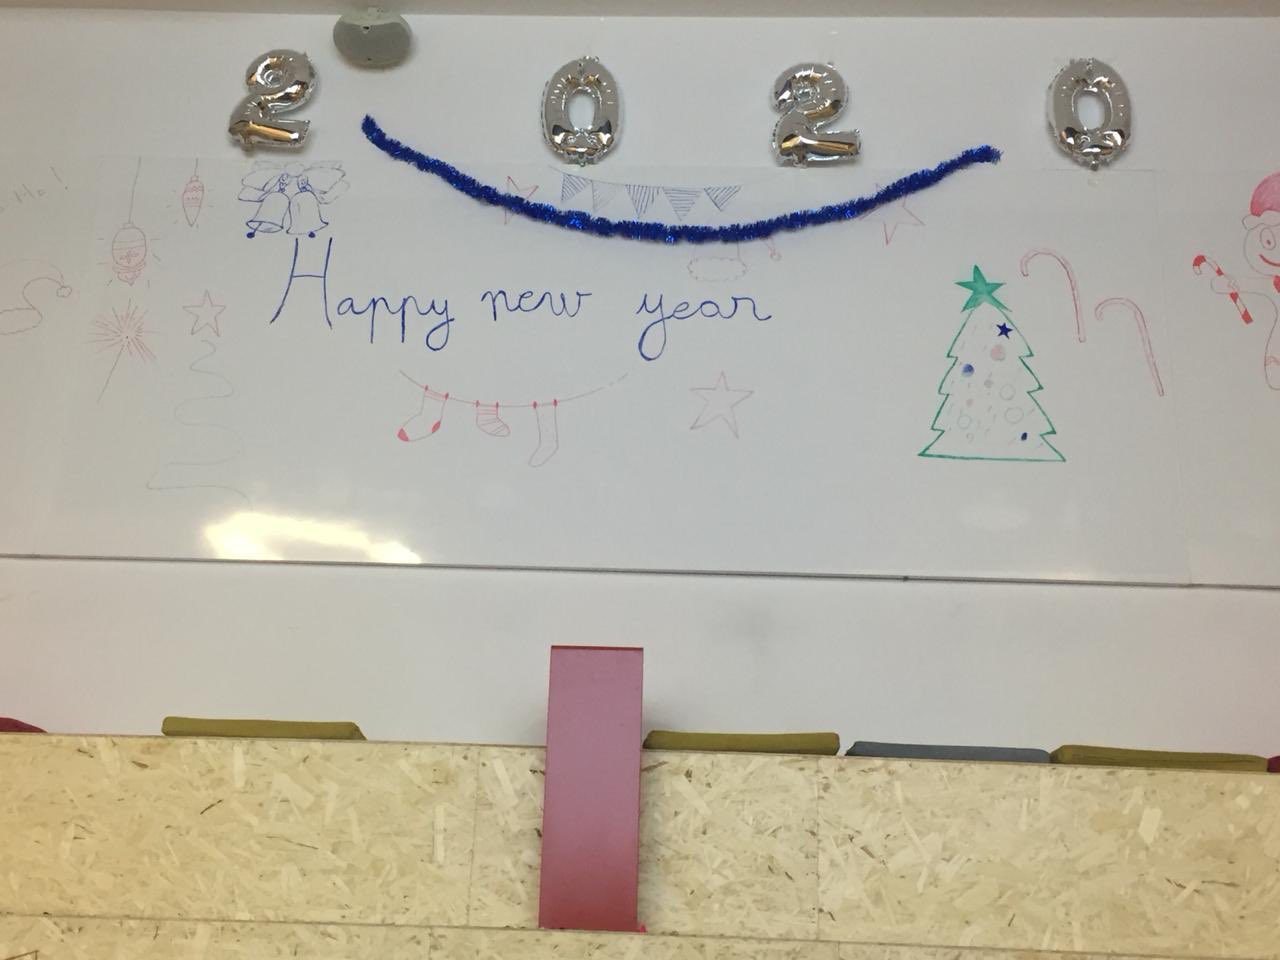 2020
Ho!
Happy new year